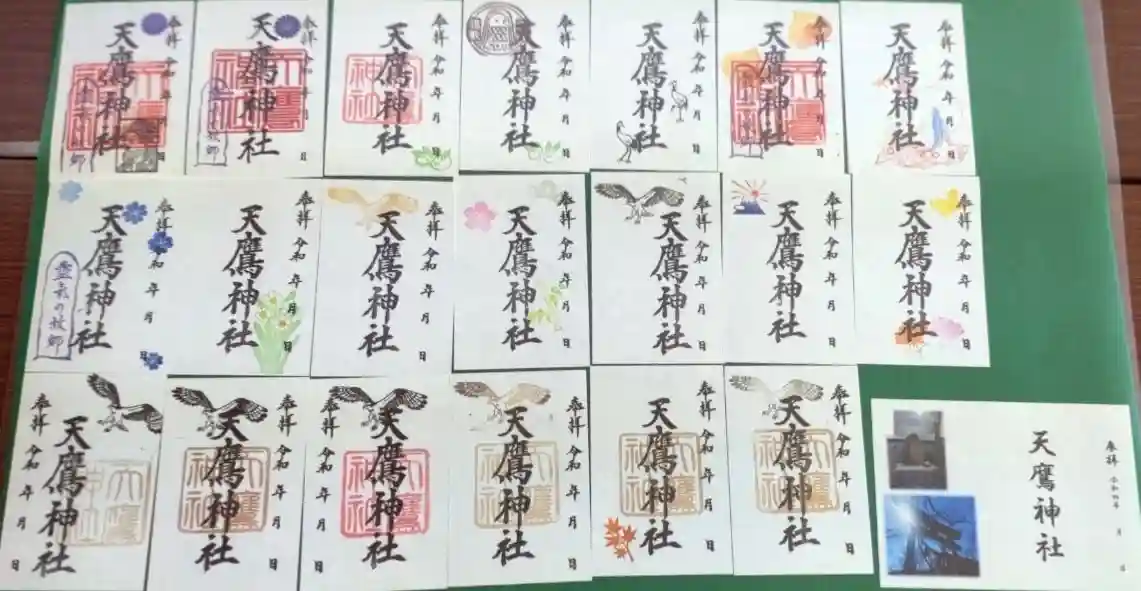 奉拝 令和 年 月 日
天鷹神社
奉拝 令和 年 月 日
天鷹神社
奉拝 令和 年 月 日
天鷹神社
奉拝 令和 年 月 日
天鷹神社
奉拝 令和 年 月 日
天鷹神社
奉拝 令和 年 月 日
天鷹神社
奉拝 令和 年 月 日
天鷹神社
奉拝 令和 年 月 日
天鷹神社
の故郷
奉拝 令和 年 月 日
天鷹神社
奉拝 令和 年 月 日
天鷹神社
奉拝 令和 年 月 日
天鷹神社
奉拝 令和 年 月 日
天鷹神社
奉拝 令和 年 月 日
天鷹神社
奉拝 令和 年 月 日
天鷹神社
奉拝 令和 年 月 日
天鷹神社
奉拝 令和 年 月 日
天鷹神社
奉拝 令和 年 月 日
天鷹神社
奉拝 令和 年 月 日
天鷹神社
奉拝 令和 年 月 日
天鷹神社
奉拝 令和 年 月 日
天鷹神社
奉拝 令和 年 月 日
天鷹神社